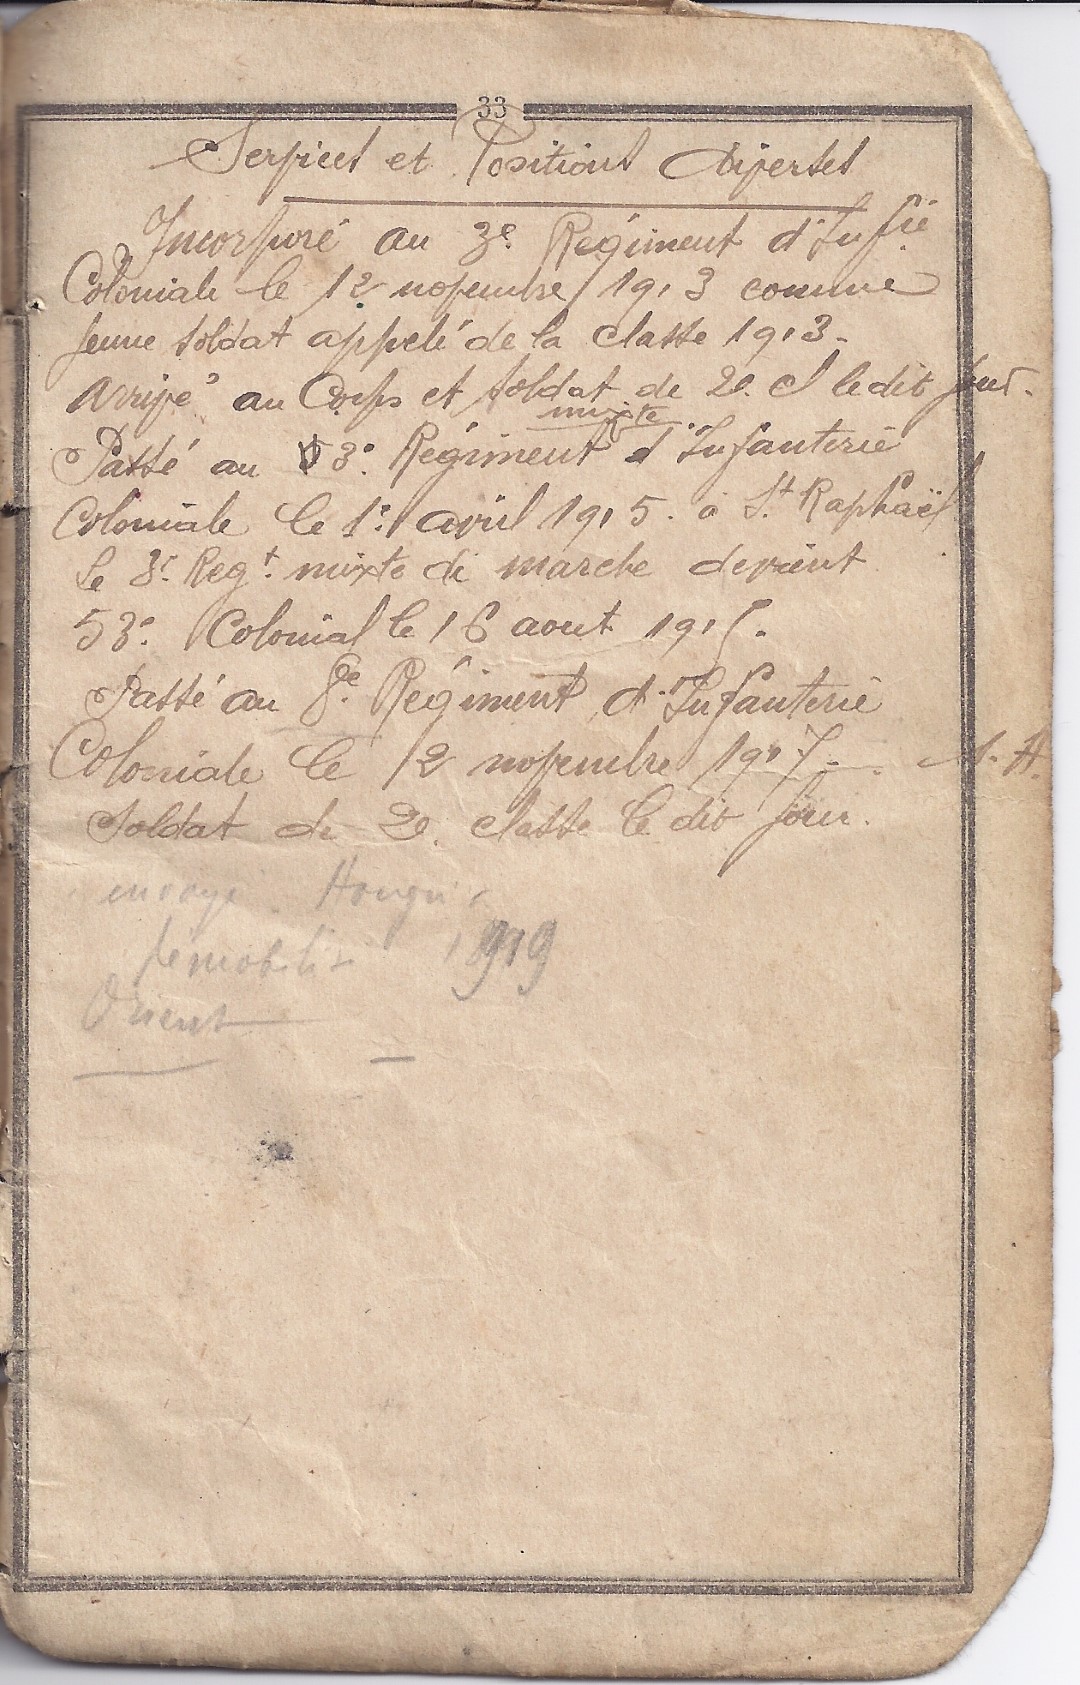 33
Services et Positions diverses
Incorporé au 3e Régiment d'Infie
Coloniale le 12 novembre 1913 comme
jeune soldat appelé de la classe 1913.
Arrivé au Corps et soldat de 2e cl le dit jour.
mixte
Passé au 3e Régiment d'Infanterie
Coloniale le 1er avril 1915. à St Raphaël
Le 3e Regt mixte de marche devient
53e Colonial le 16 aout 1915.
Passé au 8e Régiment d'Infanterie
Coloniale le 12 novembre 1917. A.H.
Soldat de 2e classe le dit jour.
envoye Hongrie
demobilise 1919
Orient